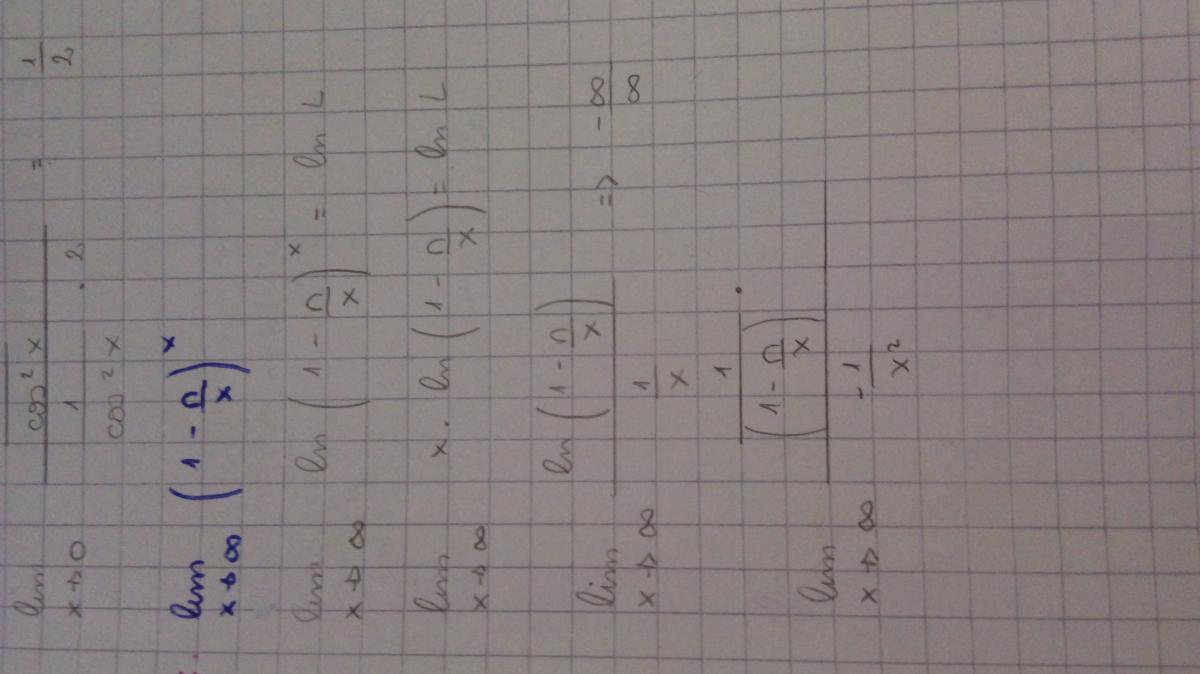 lim x→0 cos² x / (1 / cos² x · 2) = 1/2
lim x→∞ (1 - n/x)^x
lim x→∞ ln (1 - n/x)^x = ln L
lim x→∞ x · ln (1 - n/x) = ln L
lim x→∞ ln (1 - n/x) / (1/x) => -∞/∞
lim x→∞ 1 / (1 - n/x) · / (-1/x²)